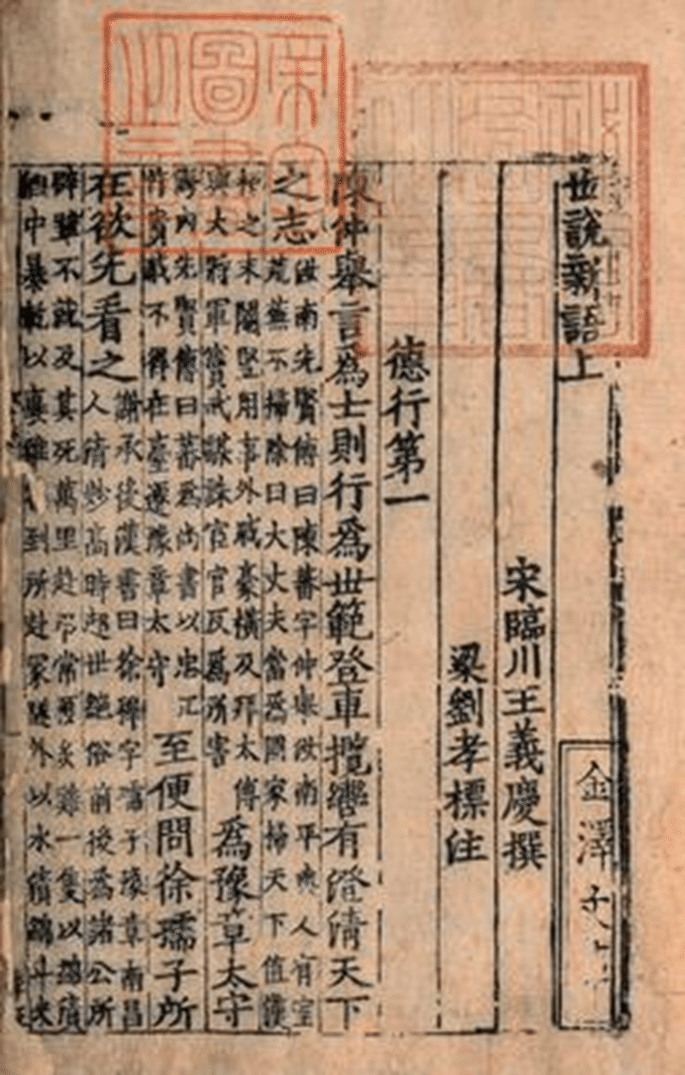 帝室圖書之章
世說新語上
金澤文
宋臨川王義慶撰
梁劉孝標注
德行第一
陳仲舉言爲士則行爲世範登車攬轡有澄清天下
之志汝南先賢傳曰陳蕃字仲舉汝南平輿人有室
荒蕪不掃除曰大丈夫當爲國家掃天下值漢
桓之末閹豎用事外戚豪橫及拜太傅
與大將軍竇武謀誅宦官反爲所害
爲豫章太守
海內先賢傳曰蕃爲尚書以忠正
忤貴戚不得在臺遷豫章太守
至便問徐孺子所
在欲先看之謝承後漢書曰徐穉字孺子豫章南昌
人清妙高時超世絕俗前後爲諸公所
辟雖不就及其死萬里赴弔常豫炙雞一隻以綿漬
酒中暴乾以裹雞到所赴冢隧外以水漬綿斗米